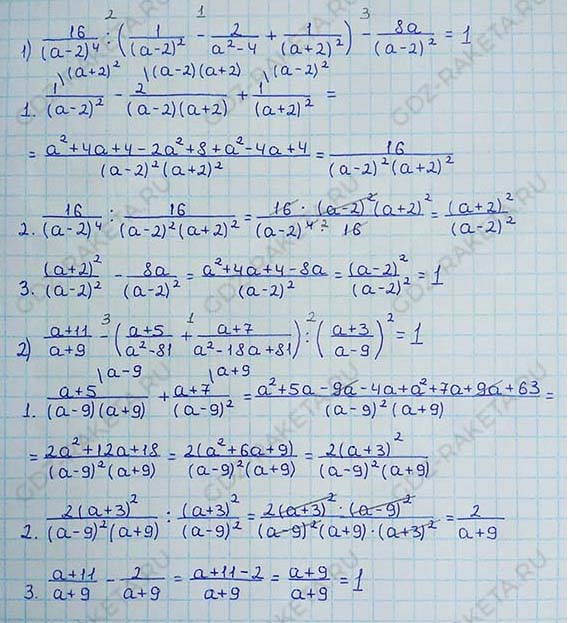 2 1 3
1) 16/(a-2)⁴ : (1/(a-2)² - 2/(a²-4) + 1/(a+2)²) - 8a/(a-2)² = 1
\(a+2)² \(a-2)(a+2) \(a-2)²
1. 1/(a-2)² - 2/((a-2)(a+2)) + 1/(a+2)² =
= (a²+4a+4-2a²+8+a²-4a+4)/((a-2)²(a+2)²) = 16/((a-2)²(a+2)²)
2. 16/(a-2)⁴ : 16/((a-2)²(a+2)²) = (16·(a-2)²(a+2)²)/((a-2)⁴ ² 16) = (a+2)²/(a-2)²
3. (a+2)²/(a-2)² - 8a/(a-2)² = (a²+4a+4-8a)/(a-2)² = (a-2)²/(a-2)² = 1
3 1 2
2) (a+11)/(a+9) - ((a+5)/(a²-81) + (a+7)/(a²-18a+81)) : ((a+3)/(a-9))² = 1
\a-9 \a+9
1. (a+5)/((a-9)(a+9)) + (a+7)/(a-9)² = (a²+5a-9a-4a+a²+7a+9a+63)/((a-9)²(a+9)) =
= (2a²+12a+18)/((a-9)²(a+9)) = 2(a²+6a+9)/((a-9)²(a+9)) = 2(a+3)²/((a-9)²(a+9))
2. 2(a+3)²/((a-9)²(a+9)) : (a+3)²/(a-9)² = (2(a+3)²·(a-9)²)/((a-9)²(a+9)·(a+3)²) = 2/(a+9)
3. (a+11)/(a+9) - 2/(a+9) = (a+11-2)/(a+9) = (a+9)/(a+9) = 1
GDZ-RAKETA.RU